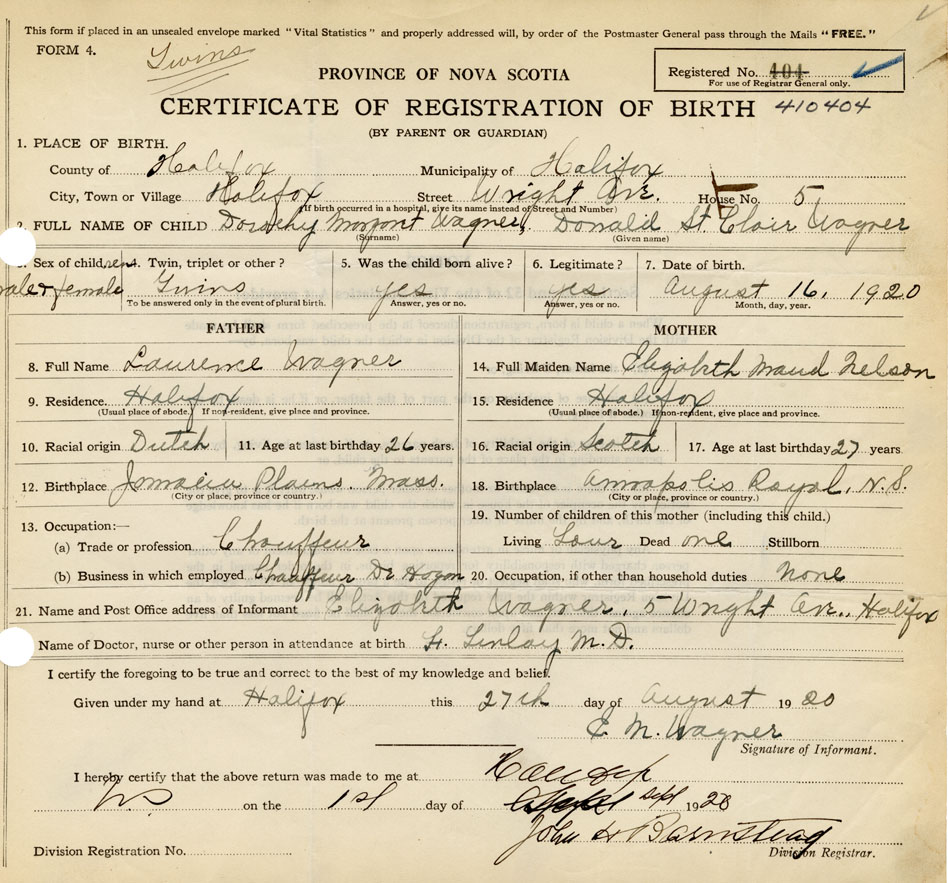 This form if placed in an unsealed envelope marked "Vital Statistics" and properly addressed will, by order of the Postmaster General pass through the Mails "FREE."
FORM 4. Twins
PROVINCE OF NOVA SCOTIA
Registered No. 404
For use of Registrar General only.
CERTIFICATE OF REGISTRATION OF BIRTH 410404
(BY PARENT OR GUARDIAN)
1. PLACE OF BIRTH.
County of Halifax Municipality of Halifax
City, Town or Village Halifax Street Wright Ave. House No. 5
(If birth occurred in a hospital, give its name instead of Street and Number)
2. FULL NAME OF CHILD Dorothy Margaret Wagner, Donald St. Clair Wagner
(Surname) (Given name)
Sex of children 4. Twin, triplet or other? 5. Was the child born alive? 6. Legitimate? 7. Date of birth.
male & female Twins yes yes August 16, 1920
To be answered only in the event of plural birth. Answer, yes or no. Answer, yes or no. Month, day, year.
FATHER MOTHER
8. Full Name Laurence Wagner 14. Full Maiden Name Elizabeth Maud Nelson
9. Residence. Halifax 15. Residence Halifax
(Usual place of abode.) If non-resident, give place and province. (Usual place of abode.) If non-resident, give place and province.
10. Racial origin Dutch 11. Age at last birthday 26 years. 16. Racial origin Scotch 17. Age at last birthday 27 years.
12. Birthplace Jamaica Plains. Mass. 18. Birthplace Annapolis Royal, N.S.
(City or place, province or country.) (City or place, province or country.)
19. Number of children of this mother (including this child.)
13. Occupation:—
(a) Trade or profession Chauffeur Living Four Dead one Stillborn
(b) Business in which employed Chauffeur Dr Hogan 20. Occupation, if other than household duties none
21. Name and Post Office address of Informant Elizabeth Wagner. 5 Wright Ave., Halifax
Name of Doctor, nurse or other person in attendance at birth Finlay M.D.
I certify the foregoing to be true and correct to the best of my knowledge and belief.
Given under my hand at Halifax this 27th day of August 1920
E. M. Wagner
Signature of Informant.
I hereby certify that the above return was made to me at Halifax
NS on the 1st day of Sept 1920
John H Barnstead
Division Registration No. Division Registrar.